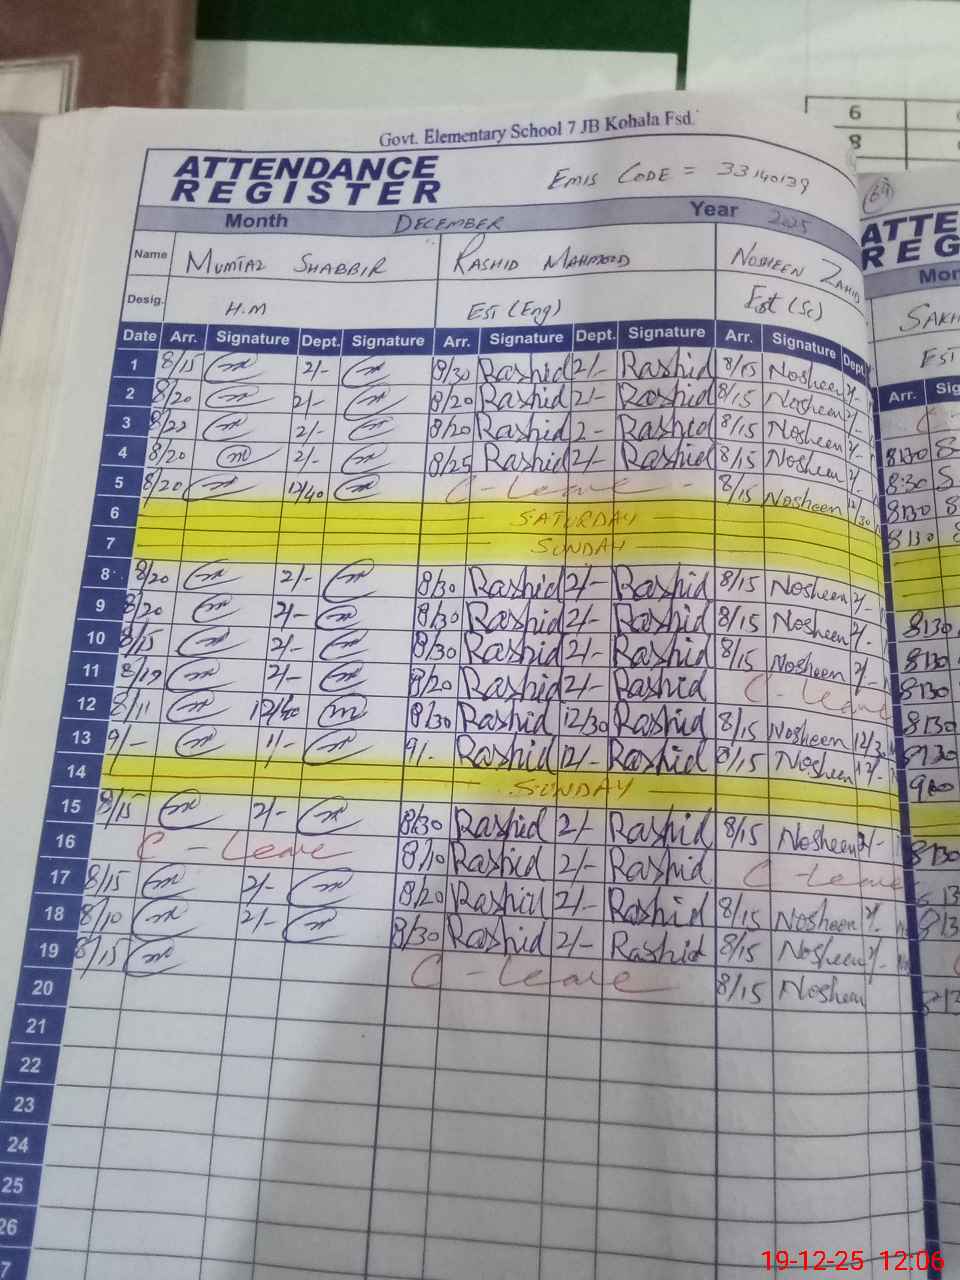 6
8
Govt. Elementary School 7 JB Kohala Fsd.
ATTENDANCE REGISTER EMIS CODE = 33140139
Month DECEMBER Year 2025
Name MUMTAZ SHABBIR RASHID MAHMOOD NOSHEEN ZAHID
Desig. H.M EST (Eng) Est (Sc)
Date Arr. Signature Dept. Signature Arr. Signature Dept. Signature Arr. Signature Dept.
1 8/15 2/- 8/30 Rashid 2/- Rashid 8/15 Nosheen 2/-
2 8/20 2/- 8/20 Rashid 2/- Rashid 8/15 Nosheen 2/-
3 8/22 2/- 8/20 Rashid 2- Rashid 8/15 Nosheen 2/-
4 8/20 2/- 8/25 Rashid 2/- Rashid 8/15 Nosheen 2/-
5 8/20 12/40 C-Leave 8/15 Nosheen 12/30
6 SATURDAY
7 SUNDAY
8 8/20 2/- 8/30 Rashid 2/- Rashid 8/15 Nosheen 2/-
9 8/20 2/- 8/30 Rashid 2/- Rashid 8/15 Nosheen 2/-
10 8/15 2/- 8/30 Rashid 2/- Rashid 8/15 Nosheen 2/-
11 2/- 8/20 Rashid 2/- Rashid C-Leave
12 8/11 12/40 8/30 Rashid 12/30 Rashid 8/15 Nosheen 12/30
13 9/- 1/- 9/- Rashid 12/- Rashid 8/15 Nosheen 12/-
14 SUNDAY
15 8/15 2/- 8/30 Rashid 2/- Rashid 8/15 Nosheen 2/-
16 C-Leave 8/10 Rashid 2/- Rashid C-Leave
17 8/15 2/- 8/20 Rashid 2/- Rashid 8/15 Nosheen 2/-
18 8/10 2/- 8/30 Rashid 2/- Rashid 8/15 Nosheen 2/-
19 8/15 C-Leave 8/15 Nosheen
20
21
22
23
24
25
26
7
ATTE
REG
Mon
SAKH
EST
Arr. Sig
8:30 S
8:30 S
8:30
8:30
8:30
8:30
8:30
8:30
8:30
9:00
8:30
19-12-25 12:06